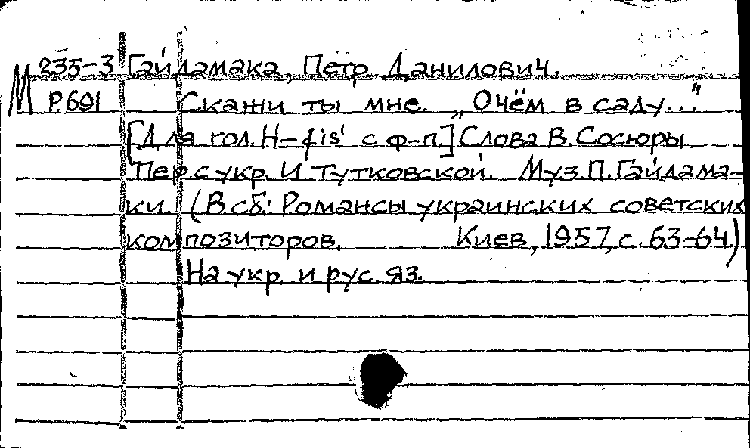 М 235-3 Гайдамака, Пётр Данилович.
Р691 Скажи ты мне. „Очём в саду..."
[Для гол. H-fis¹ с ф-п.] Слова В. Сосюры
Пер. с укр. И Тутковской. Муз. П. Гайдама-
ки. (В сб: Романсы украинских советских
композиторов. Киев, 1957, с. 63-64)
На укр. и рус. яз.